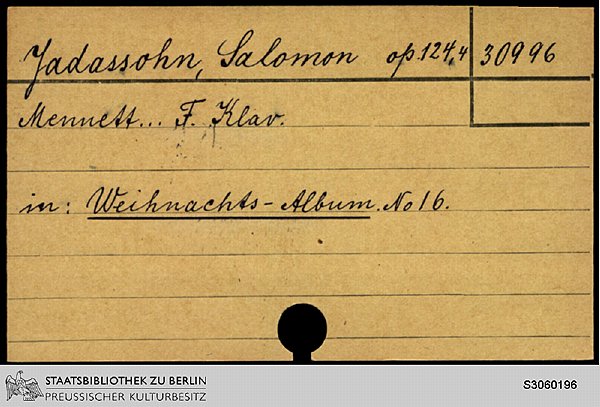 Jadassohn, Salomon op.124,4 30996
Menuett... F. Klav.
in: Weihnachts-Album. No 16.
STAATSBIBLIOTHEK ZU BERLIN
PREUSSISCHER KULTURBESITZ
S3060196